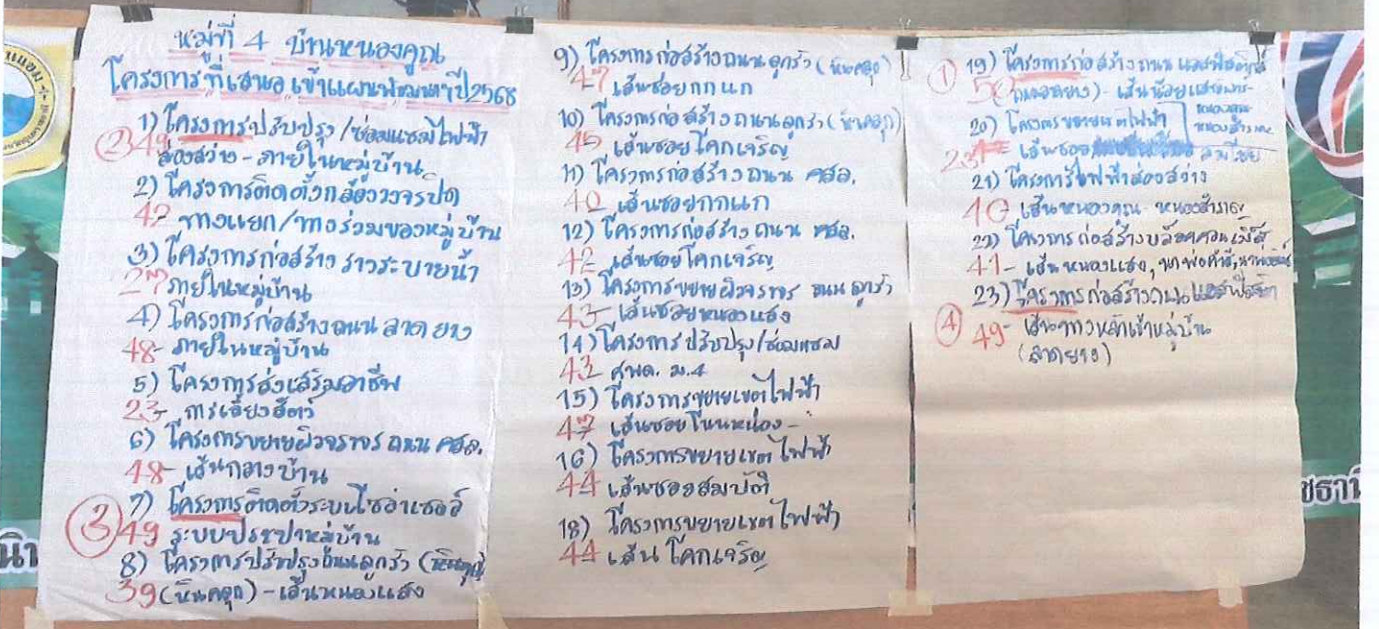 หมู่ที่ 4 บ้านหนองคูณ
โครงการที่เสนอเข้าแผนพัฒนาปี 2568
1) โครงการปรับปรุง/ซ่อมแซมไฟฟ้า
② 49 ส่องสว่าง - ภายในหมู่บ้าน
2) โครงการติดตั้งกล้องวงจรปิด
42 ทางแยก/ทางร่วมของหมู่บ้าน
3) โครงการก่อสร้าง รางระบายน้ำ
27 ภายในหมู่บ้าน
4) โครงการก่อสร้างถนน ลาดยาง
48- ภายในหมู่บ้าน
5) โครงการส่งเสริมอาชีพ
23- การเลี้ยงสัตว์
6) โครงการขยายผิวจราจร ถนน คสล.
48- เส้นกลางบ้าน
7) โครงการติดตั้งระบบโซล่าเซลล์
③ 49 ระบบประปาหมู่บ้าน
8) โครงการปรับปรุงถนนลูกรัง
39 (หินคลุก) - เส้นหนองแสง
9) โครงการก่อสร้างถนนลูกรัง (หินคลุก)
47 เส้นซอยกกแก
10) โครงการก่อสร้างถนนลูกรัง (หินคลุก)
45 เส้นซอยโคกเจริญ
11) โครงการก่อสร้างถนน คสล.
40 เส้นซอยกกแก
12) โครงการก่อสร้างถนน คสล.
42 เส้นซอยโคกเจริญ
13) โครงการขยายผิวจราจร ถนนลูกรัง
43- เส้นซอยหนองแสง
14) โครงการปรับปรุง/ซ่อมแซม
43 ศพด. ม.4
15) โครงการขยายเขตไฟฟ้า
47 เส้นซอยโนนหน่อง -
16) โครงการขยายเขตไฟฟ้า
44 เส้นซอยสมบัติ
18) โครงการขยายเขตไฟฟ้า
44 เส้นโคกเจริญ
① 19) โครงการก่อสร้างถนน แอสฟัลติกส์
50 (ถนนลาดยาง) - เส้น
20) โครงการขยายเขตไฟฟ้า
23 เส้นซอย สมโชย
21) โครงการไฟฟ้าส่องสว่าง
40 เส้นหนองคูณ - หนองสำราญ
22) โครงการก่อสร้างบล็อคคอนเว็ลส์
41- เส้นหนองแสง,
23) โครงการก่อสร้างถนนแอสฟัลติก
④ 49- เส้นทางหลักเข้าหมู่บ้าน
(ลาดยาง)